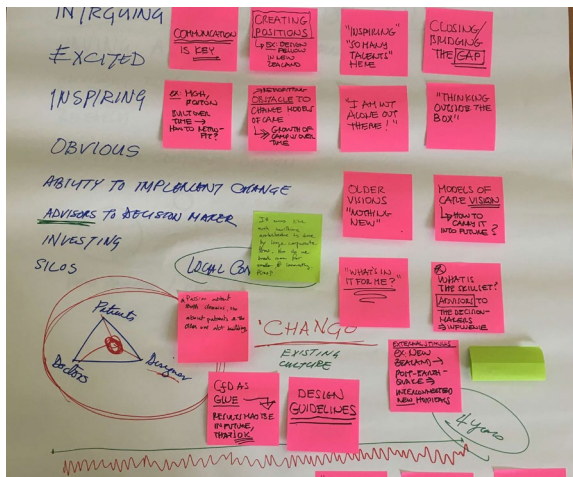 INTRGUING
EXCITED
INSPIRING
OBVIOUS
ABILITY TO IMPLEMENT CHANGE
ADVISORS TO DECISION MAKER
INVESTING
SILOS
LOCAL
COMMUNICATION
IS KEY
CREATING
POSITIONS
EX: DESIGN
FELLOW
IN NEW
ZEALAND
"INSPIRING
"SO MANY
TALENTS"
HERE
CLOSING/
BRIDGING
THE GAP
EX: MGH,
BOSTON
BUILT OVER
TIME →
HOW TO RETRO-
FIT?
OBSTACLE TO
CHANGE MODELS
OF CARE
GROWTH OF
CAMPUS OVER
TIME
"I AM NOT
ALONE OUT
THERE!"
"THINKING
OUTSIDE THE
BOX"
OLDER
VISIONS
"NOTHING
NEW"
MODELS OF
CARE VISION
HOW TO
CARRY IT
INTO FUTURE?
"WHAT'S IN
IT FOR ME?"
WHAT IS
THE SKILLSET?
ADVISORS TO
THE DECISION-
MAKERS
→ INFLUENCE
by large corporate
Patients
Doctors
Designer
'CHANGE
EXISTING
CULTURE
EXTERNAL STIMULUS
EX: NEW
ZEALAND →
POST-EARTH-
QUAKE →
INTERCONNECTED
NEW HOSPITALS
CFD AS
GLUE →
RESULTS MAY BE
IN FUTURE,
THAT'S OK
DESIGN
GUIDELINES
4 Years